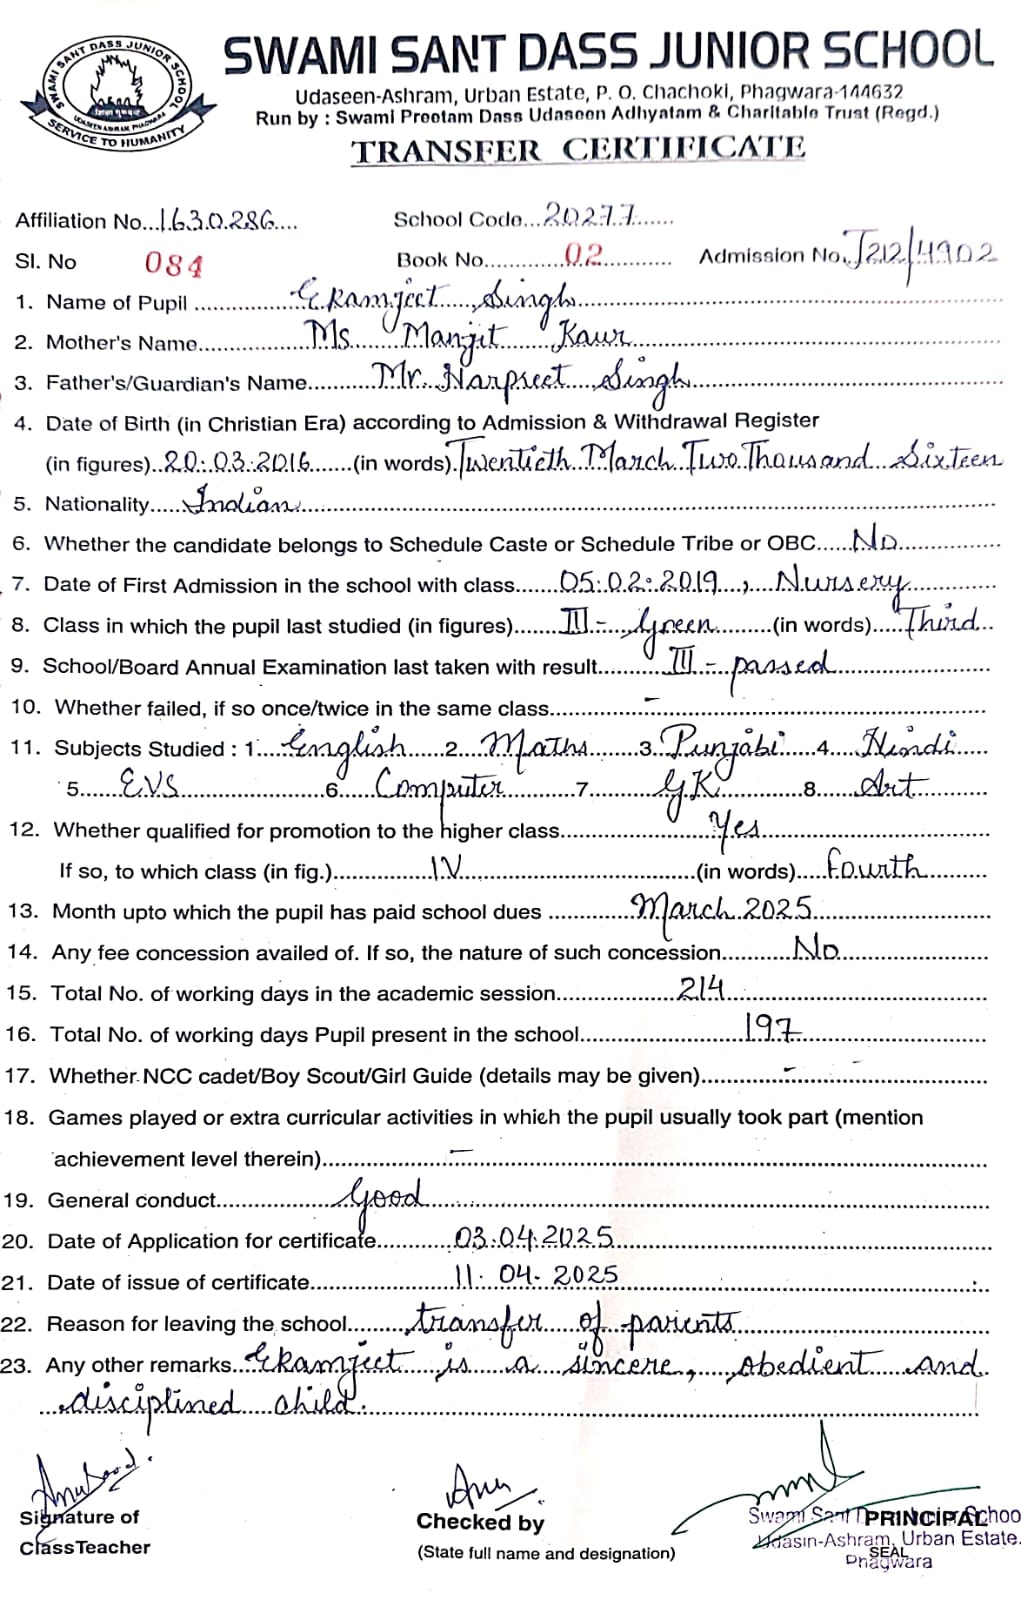 SWAMI SANT DASS JUNIOR SCHOOL
UDASEEN ASHRAM PHAGWARA
SERVICE TO HUMANITY
SWAMI SANT DASS JUNIOR SCHOOL
Udaseen-Ashram, Urban Estate, P. O. Chachoki, Phagwara-144632
Run by : Swami Preetam Dass Udaseen Adhyatam & Charitable Trust (Regd.)
TRANSFER CERTIFICATE
Affiliation No...1630286.... School Code...20277......
Sl. No 084 Book No.............02........... Admission No. J212/4902
1. Name of Pupil ...............Ekamjeet Singh
2. Mother's Name...............Ms. Manjit Kaur
3. Father's/Guardian's Name.........Mr. Harpreet Singh
4. Date of Birth (in Christian Era) according to Admission & Withdrawal Register
(in figures)..20.03.2016......(in words).Twentieth March Two Thousand Sixteen
5. Nationality.....Indian
6. Whether the candidate belongs to Schedule Caste or Schedule Tribe or OBC.....No
7. Date of First Admission in the school with class......05.02.2019, Nursery
8. Class in which the pupil last studied (in figures)......III - Green........(in words)....Third..
9. School/Board Annual Examination last taken with result.........III - passed
10. Whether failed, if so once/twice in the same class.............-
11. Subjects Studied : 1. English 2. Maths 3. Punjabi 4. Hindi
5. EVS 6. Computer 7. GK 8. Art
12. Whether qualified for promotion to the higher class............Yes
If so, to which class (in fig.)............IV............(in words)....Fourth
13. Month upto which the pupil has paid school dues ...........March 2025
14. Any fee concession availed of. If so, the nature of such concession.........No
15. Total No. of working days in the academic session............214
16. Total No. of working days Pupil present in the school............197
17. Whether NCC cadet/Boy Scout/Girl Guide (details may be given)............-
18. Games played or extra curricular activities in which the pupil usually took part (mention
achievement level therein)............-
19. General conduct............Good
20. Date of Application for certificate..........03.04.2025
21. Date of issue of certificate..............11.04.2025
22. Reason for leaving the school.......transfer of parents
23. Any other remarks..Ekamjeet is a sincere, obedient and
disciplined child.
Signature of
ClassTeacher
Checked by
(State full name and designation)
PRINCIPAL
SEAL
Swami Sant
Udasin-Ashram, Urban Estate.
Phagwara